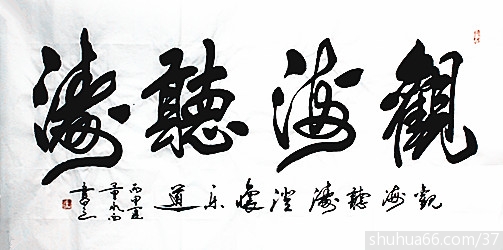 觀海聽濤
觀海聽濤澄懷乐道
丙申夏
shuhua66.com/37